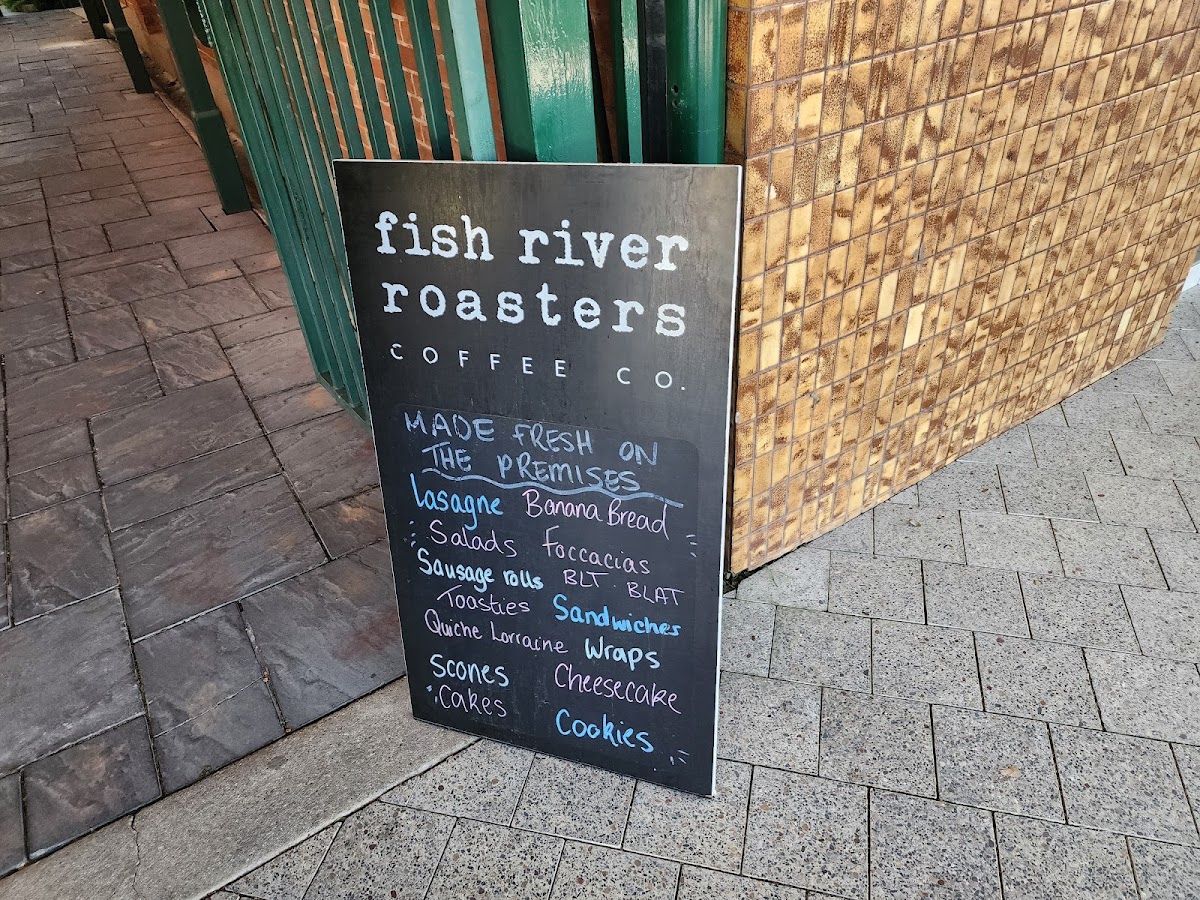 fish river
roasters
COFFEE CO.
MADE FRESH ON
THE PREMISES
Lasagne Banana Bread
Salads Foccacias
Sausage rolls BLT · BLAT
Toasties Sandwiches
Quiche Lorraine Wraps
Scones Cheesecake
Cakes Cookies